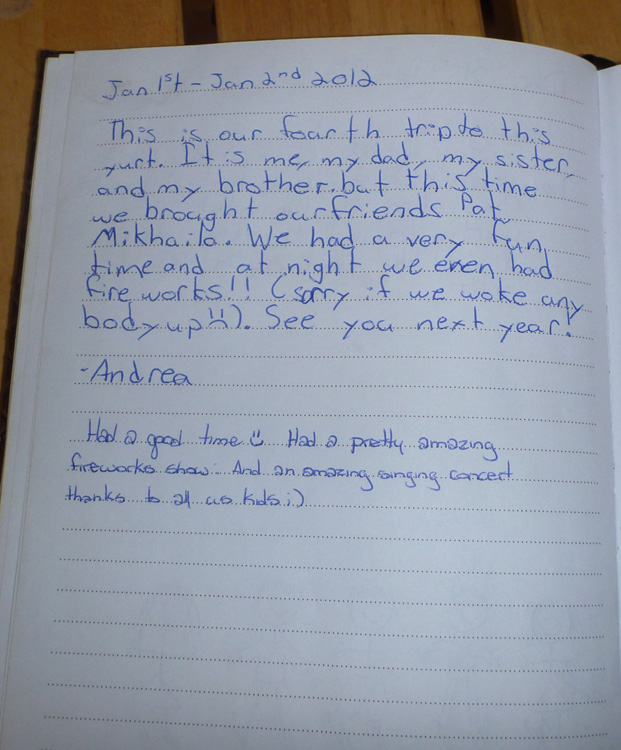 Jan 1st - Jan 2nd 2012
This is our fourth trip to this
yurt. It is me, my dad, my sister,
and my brother. but this time
we brought our friends Pat,
Mikhaila. We had a very fun
time and at night we even had
fire works!! (sorry if we woke any
body up!! :(). See you next year!
-Andrea
Had a good time :) Had a pretty amazing
fireworks show. And an amazing singing concert
thanks to all us kids ;)